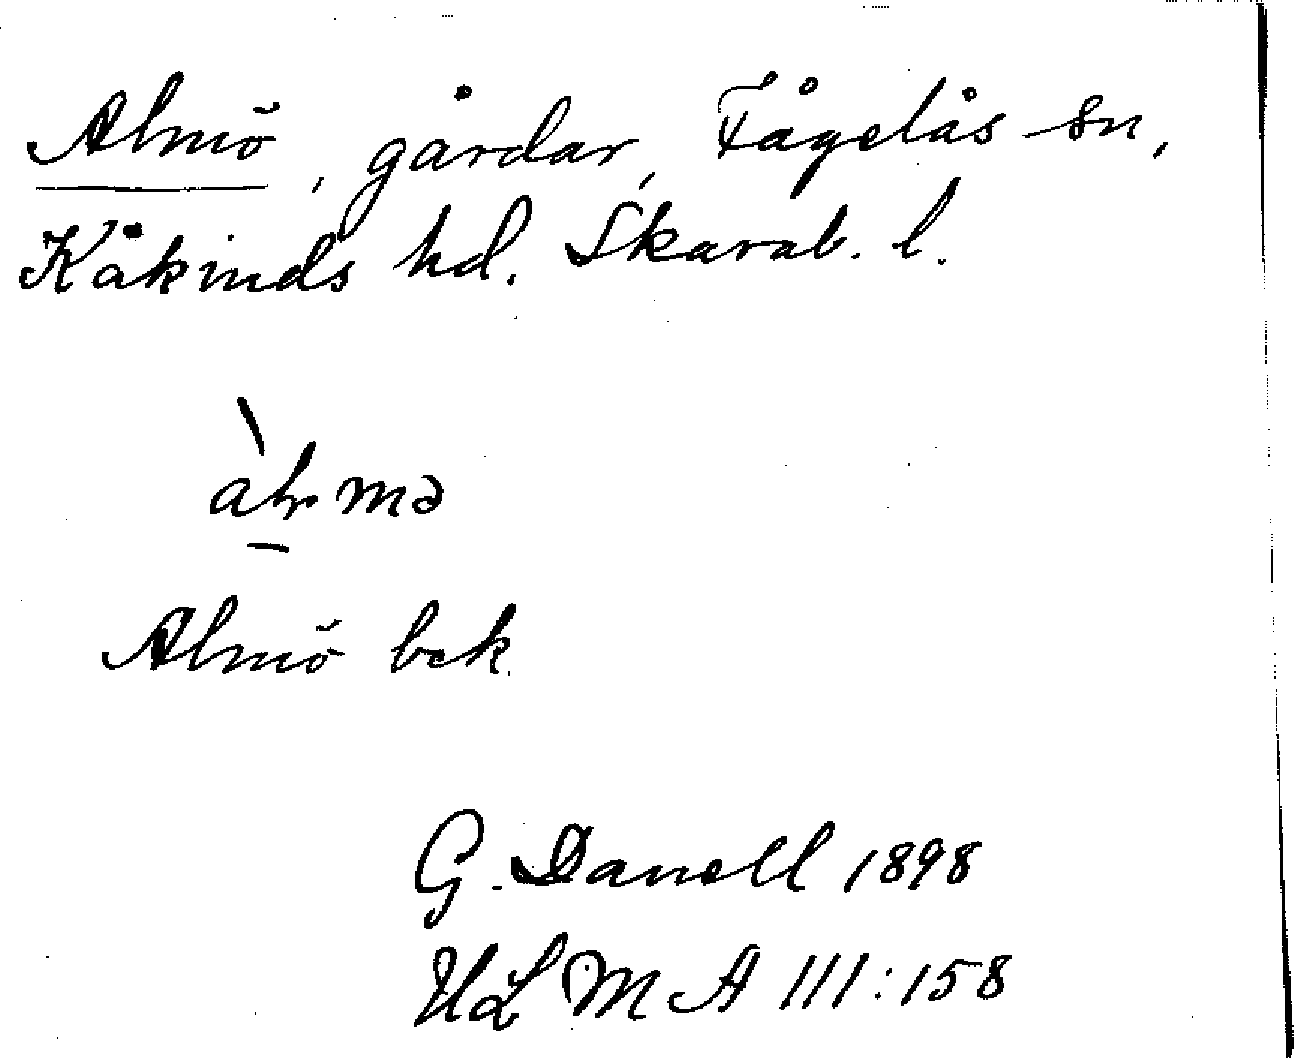 Almö, gårdar, Fågelås sn,
Kåkinds hd. Skarab. l.
Almö bek.
G. Danell 1898
ULMA 111:158